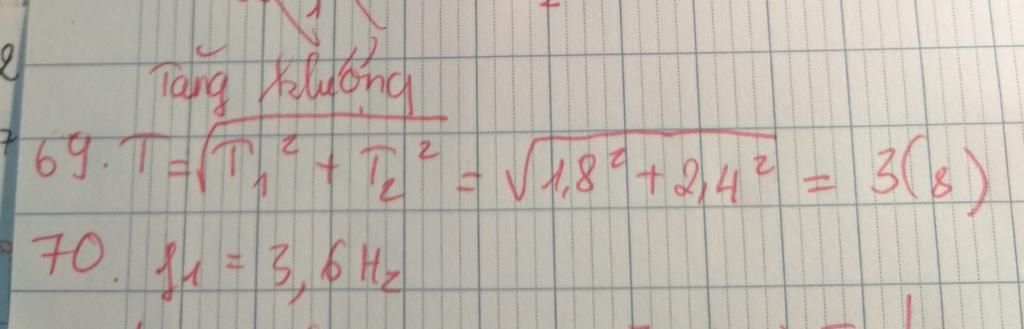 Tăng
69. T = √T₁² + T₂² = √1,8² + 2,4² = 3(s)
70. f1 = 3,6 Hz